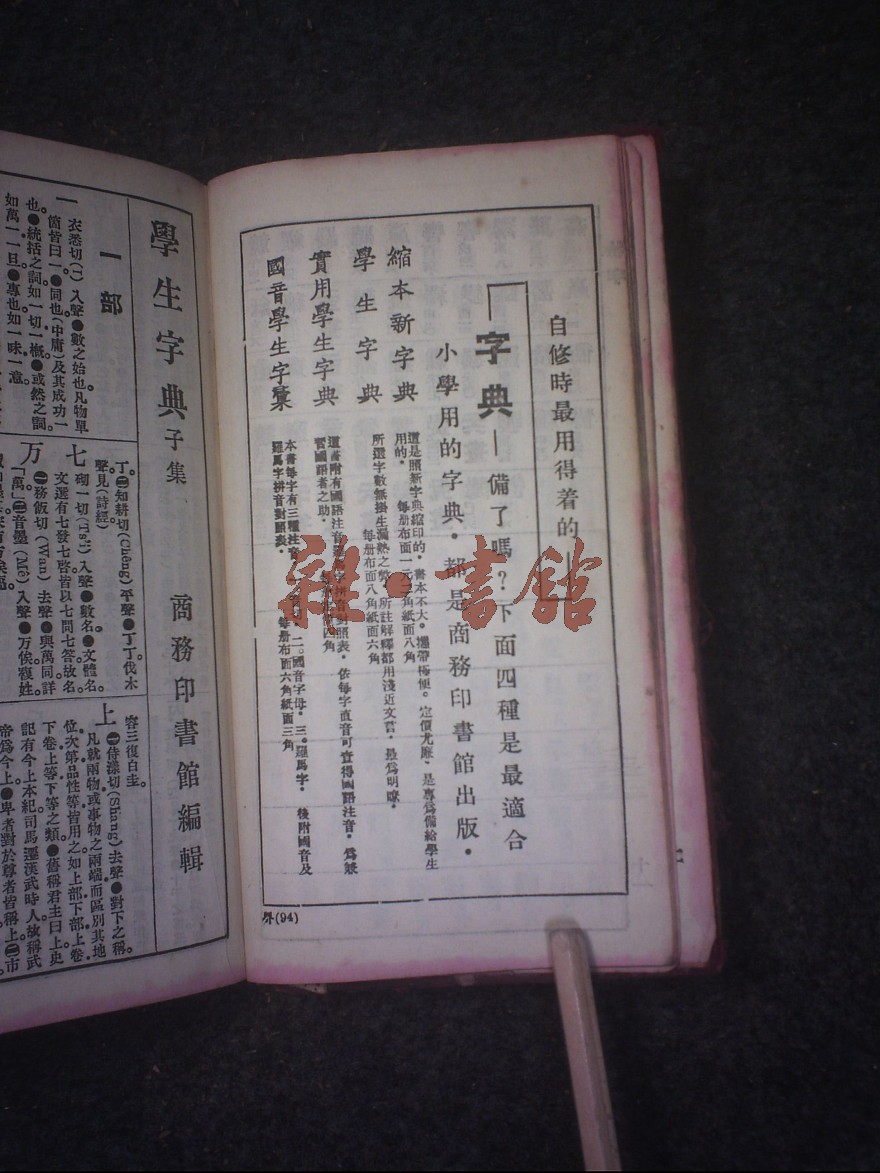 自修時最用得着的——
「字典」備了嗎？下面四種是最適合
小學用的字典．都是商務印書館出版．
縮本新字典
這是照新字典縮印的．書本不大．攜帶極便．定價尤廉．是專爲備給學生
用的．每册布面一元
紙面八角
學生字典
所選字數無掛生漏熟之弊．所註解釋都用淺近文言．最爲明瞭．
每册布面八角紙面六角
實用學生字典
這書附有國語注音
馬字拼音對照表．依每字直音可查得國語注音．爲
習國語者之助．
四角
國音學生字彙
本書每字有三種注音
二．國音字母．三．羅馬字．後附國音及
羅馬字拼音對照表．每册布面六角紙面三角
(94)
雜·書館
學生字典 子集 商務印書館編輯
一部
一
衣悉切(I)入聲●數之始也凡物單
箇皆曰一●同也(中庸)及其成功一
也●統括之詞如一切一概●或然之詞
如萬一一旦●專也如一味一意
丁㊁知耕切(Chêng)平聲●丁丁伐木
聲見(詩經)
七
砌一切(Ts'i)入聲●數名●文體名
文選有七發七啓皆以七問七答故名
万
㊀務飯切(Wan)去聲●與萬同詳
「萬」㊁音墨(Mê)入聲●万俟複姓
容三復白圭
上
㊀侍漾切(Shang)去聲●對下之稱
凡就兩物或事物之兩端而區別其地
位次第品性等皆用之如上部下部上卷
下卷上等下等之類●舊稱君主曰上史
記有今上本紀司馬遷漢武時人故稱武
帝爲今上●卑者對於尊者皆稱上㊁市